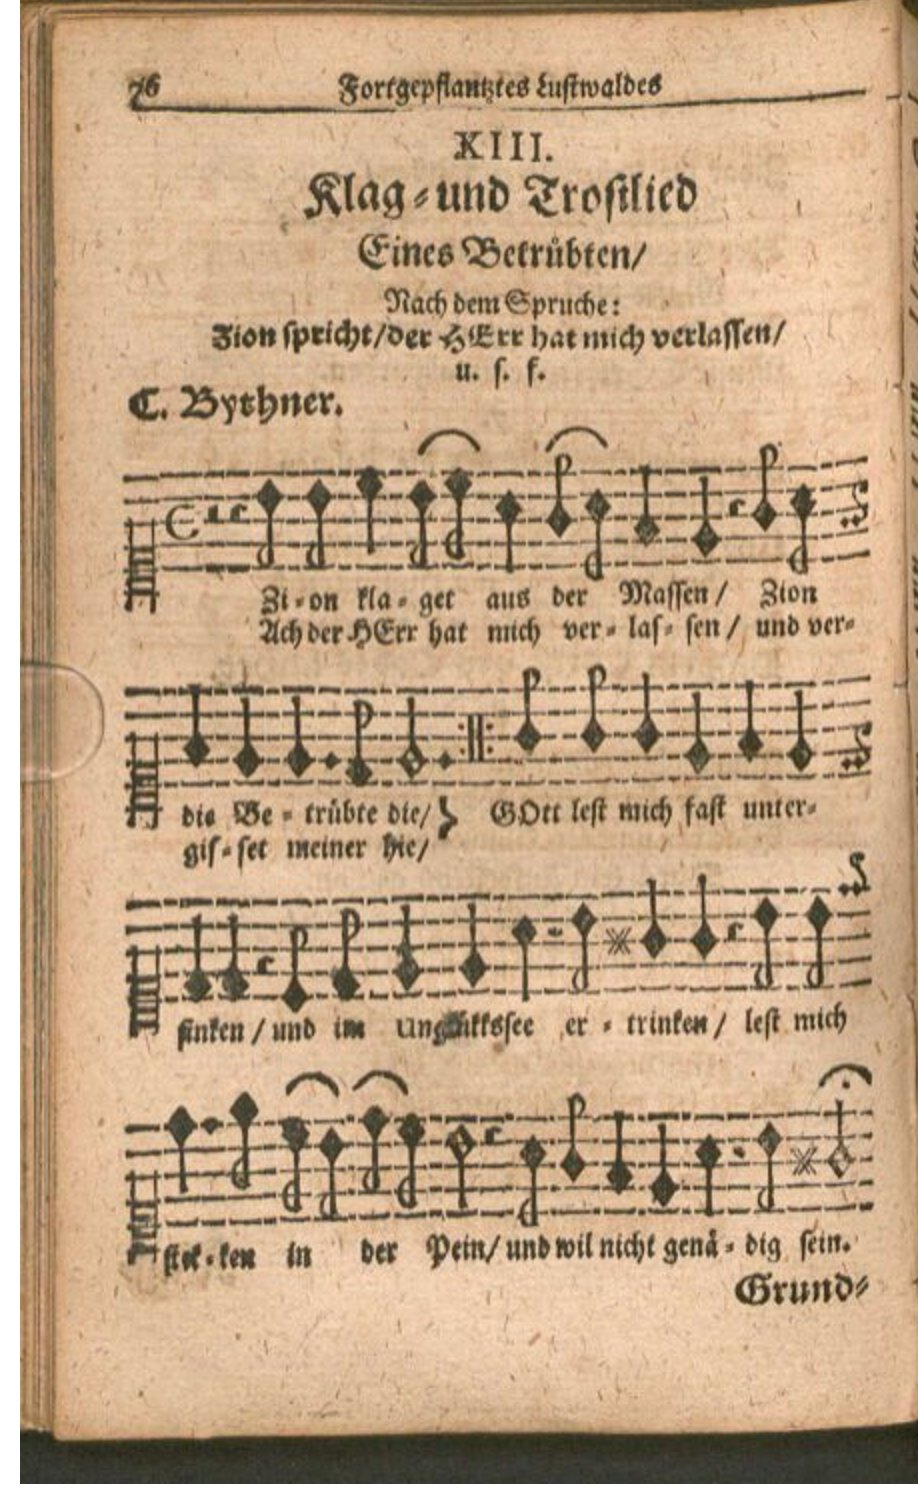 76
Fortgepflantztes Lustwaldes
XIII.
Klag-und Trostlied
Eines Betrübten/
Nach dem Spruche:
Zion spricht/der HErr hat mich verlassen/
u. s. f.
C. Bythner.
Zi-on kla-get aus der Massen/ Zion
Ach der HErr hat mich ver-las-sen/ und ver-
die Be-trübte die/ GOtt lest mich fast unter-
gis-set meiner hie/
sinken/und im Unglükkssee er-trinken/ lest mich
stek-ken in der Pein/und wil nicht genä-dig sein.
Grund-